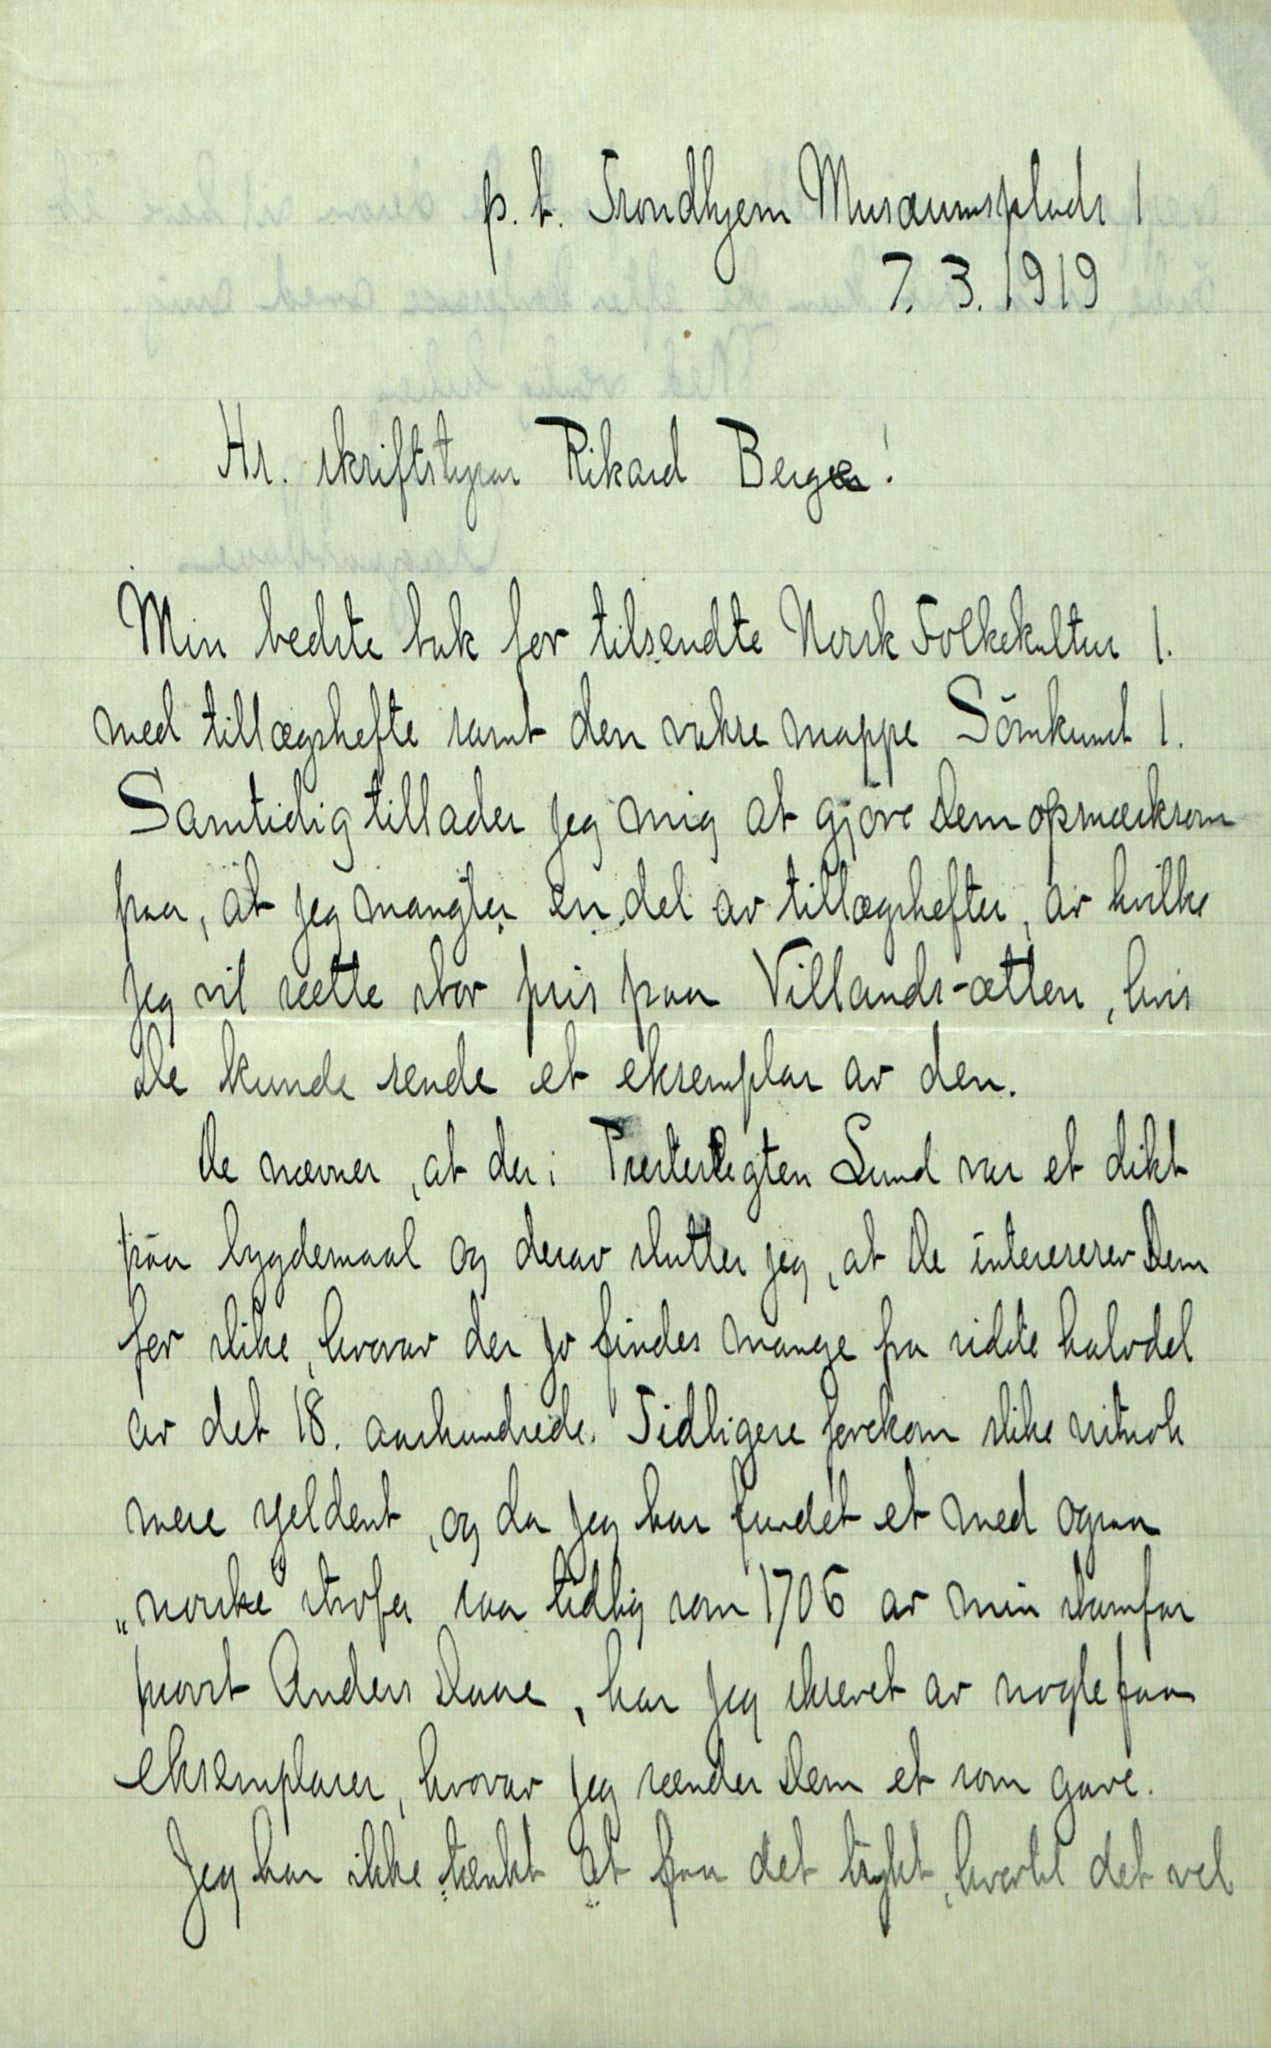 p. t. Trondhjem Musæumsplads 1
7. 3. 1919
Hr. skriftstyrar Rikard Berge!
Min bedste tak for tilsendte Norsk Folkekultur 1.
med tillægshefte samt den vakre mappe Sömkunst 1.
Samtidig tillader jeg mig at gjöre Dem opmerksom
paa, at jeg mangler en del av tillægshefter, av hvilke
jeg vil sætte stor pris paa Villands-ætten, hvis
De kunde sende et eksemplar av den.
De nævner, at der i Presteslegten Lund var et dikt
paa bygdemaal og derav slutter jeg, at De interesserer Dem
for slike, hvorav der jo findes mange fra sidste halvdel
av det 18. aarhundrede. Tidligere forekom slike nitnok
mere sjeldent, og da jeg har fundet et med ogsaa
„norske" strofer saa tidlig som 1706 av min stamfar
provst Anders Daae, har jeg skrevet av nogle faa
eksemplarer, hvorav jeg sender Dem et som gave.
Jeg har ikke tænkt at faa det trykt, hvortil det vel